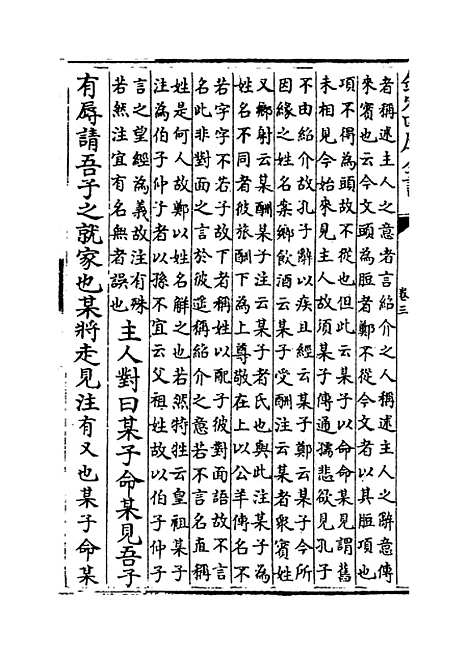 者稱述主人之意者言紹介之人稱述主人之辭意傳
來賓也云今文頭為脰者鄭不從今文者以其脰項也
項不得為頭故不從也但此云某子以命命某見謂舊
未相見今始來見主人故須某子傳通孺悲欲見孔子
不由紹介故孔子辭以疾且經云某子鄭云某子今所
因緣之姓名案鄉飲酒云某子受酬注云某者衆賓姓
又鄉射云某酬某子注云某子者氏也與此注某子為
姓名不同者彼旅酬下為上尊敬在上以公羊傳名不
若字字不若子故下者稱姓以配子彼對面語故不言
名此非對面之言於彼遥稱紹介之意若不言名直稱
姓是何人故鄭以姓名解之也若然特牲云皇祖某子
注為伯子仲子者以孫不宜云父祖姓故以伯子仲子
言之望經為義故注有殊
若然注宜有名無者誤也
主人對曰某子命某見吾子
有辱請吾子之就家也某將走見注有又也某子命某
卷三